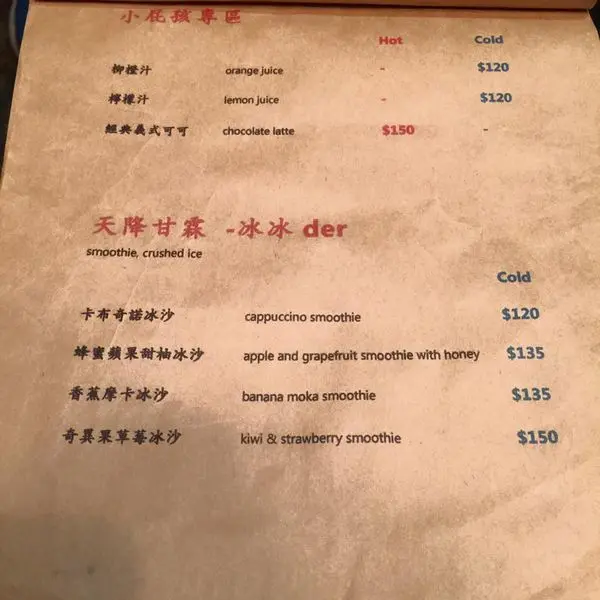 小屁孩專區
Hot Cold
柳橙汁 orange juice - $120
檸檬汁 lemon juice - $120
經典義式可可 chocolate latte $150 -
天降甘霖 -冰冰 der
smoothie, crushed ice
Cold
卡布奇諾冰沙 cappuccino smoothie $120
蜂蜜蘋果甜柚冰沙 apple and grapefruit smoothie with honey $135
香蕉摩卡冰沙 banana moka smoothie $135
奇異果草莓冰沙 kiwi & strawberry smoothie $150